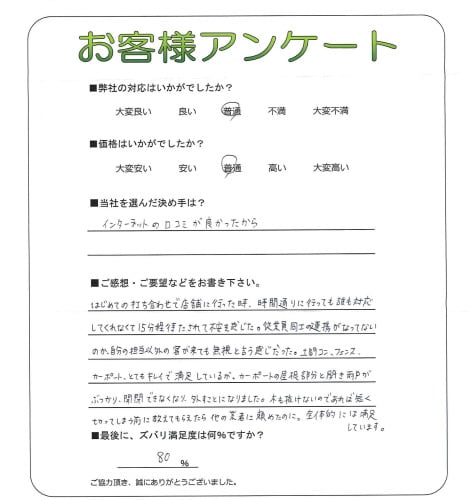 お客様アンケート
■弊社の対応はいかがでしたか？
大変良い　良い　普通　不満　大変不満
■価格はいかがでしたか？
大変安い　安い　普通　高い　大変高い
■当社を選んだ決め手は？
インターネットの口コミが良かったから
■ご感想・ご要望などをお書き下さい。
はじめての打ち合わせで店舗に行った時、時間通りに行っても誰も対応
してくれなくて15分程待たされて不安を感じた。従業員同士の連携がなってない
のか、自分の担当以外の客が来ても無視と言う感じだった。土間コン、フェンス、
カーポート、とてもキレイで満足しているが、カーポートの屋根部分と開き雨戸が
ぶつかり、開閉できなくなり、外すことになりました。木も抜けないのであれば短く
切ってしまう前に教えてもらえたら他の業者に頼めたのに。全体的には満足
しています。
■最後に、ズバリ満足度は何％ですか？
80 ％
ご協力頂き、誠にありがとうございました。